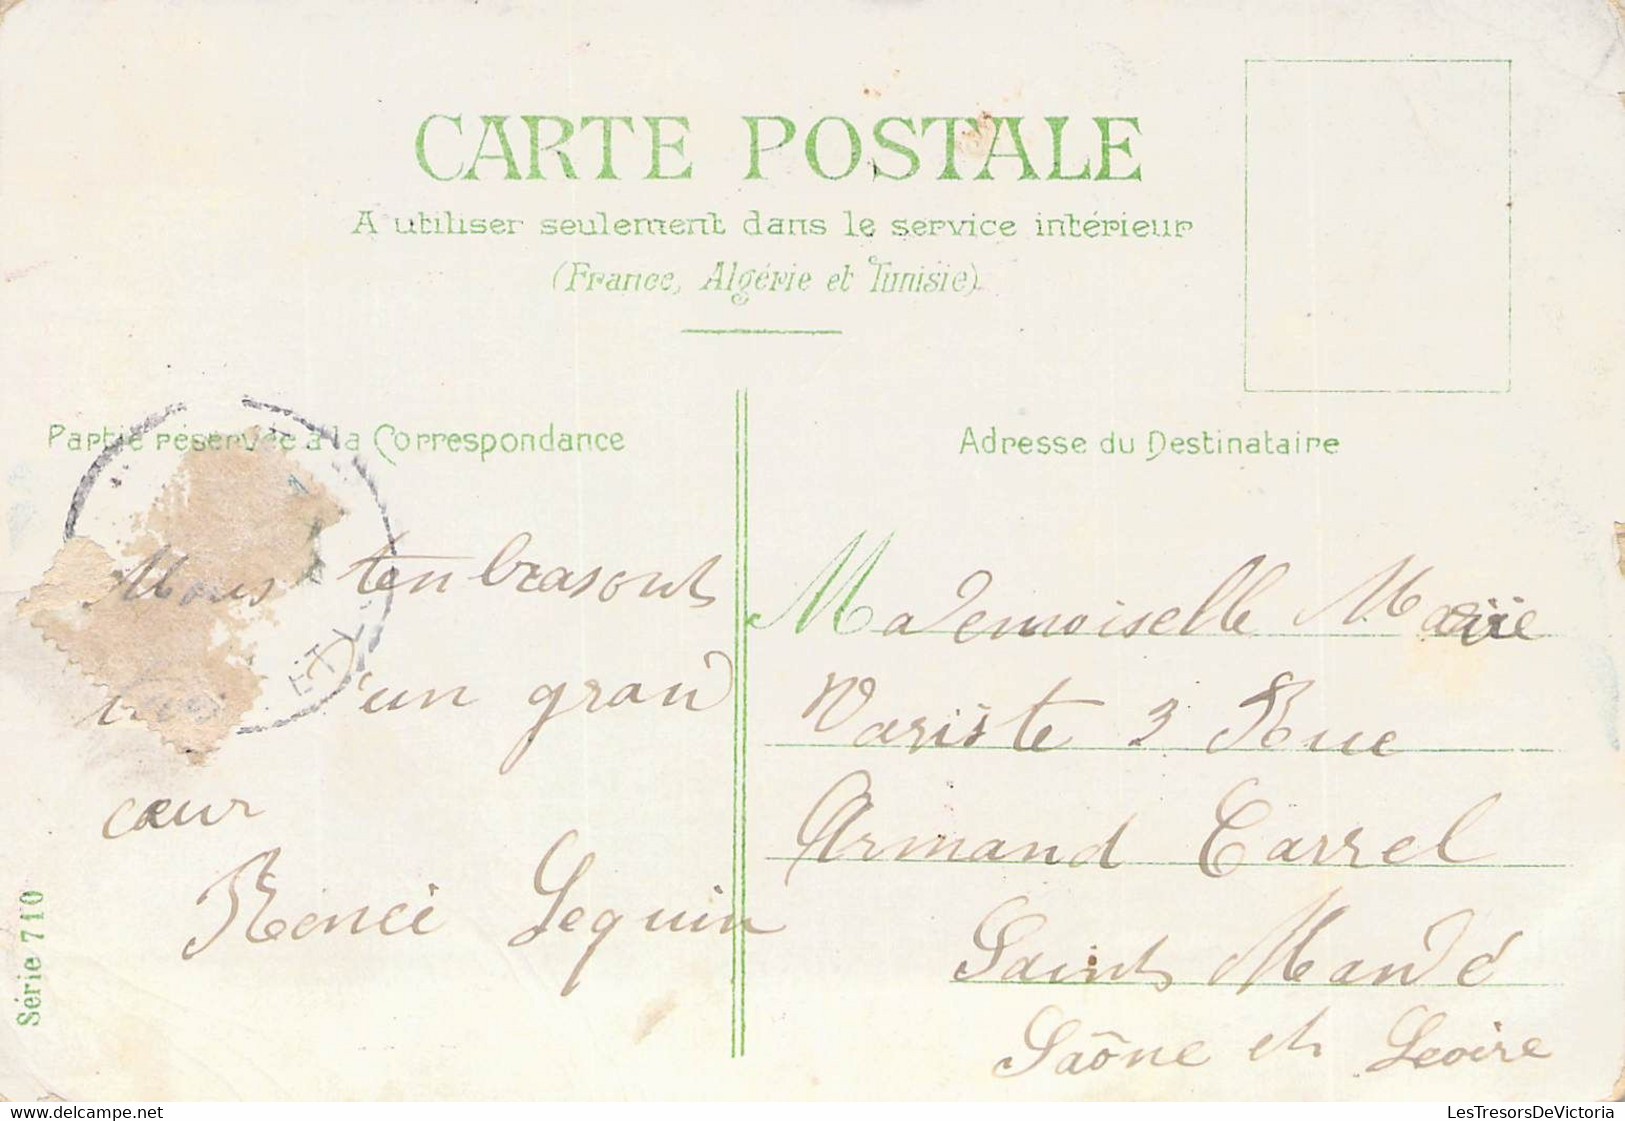 CARTE POSTALE
A utiliser seulement dans le service intérieur
(France, Algérie et Tunisie)
Partie réservée à la Correspondance
Nous tenbrasont
un grand
cœur
Lequin
Série 710
Adresse du Destinataire
Mademoiselle Marie
Variste 3 Rue
Armand Carrel
Saint Mandé
Saône et Leoire
delcampe.net
LesTresorsDeVictoria